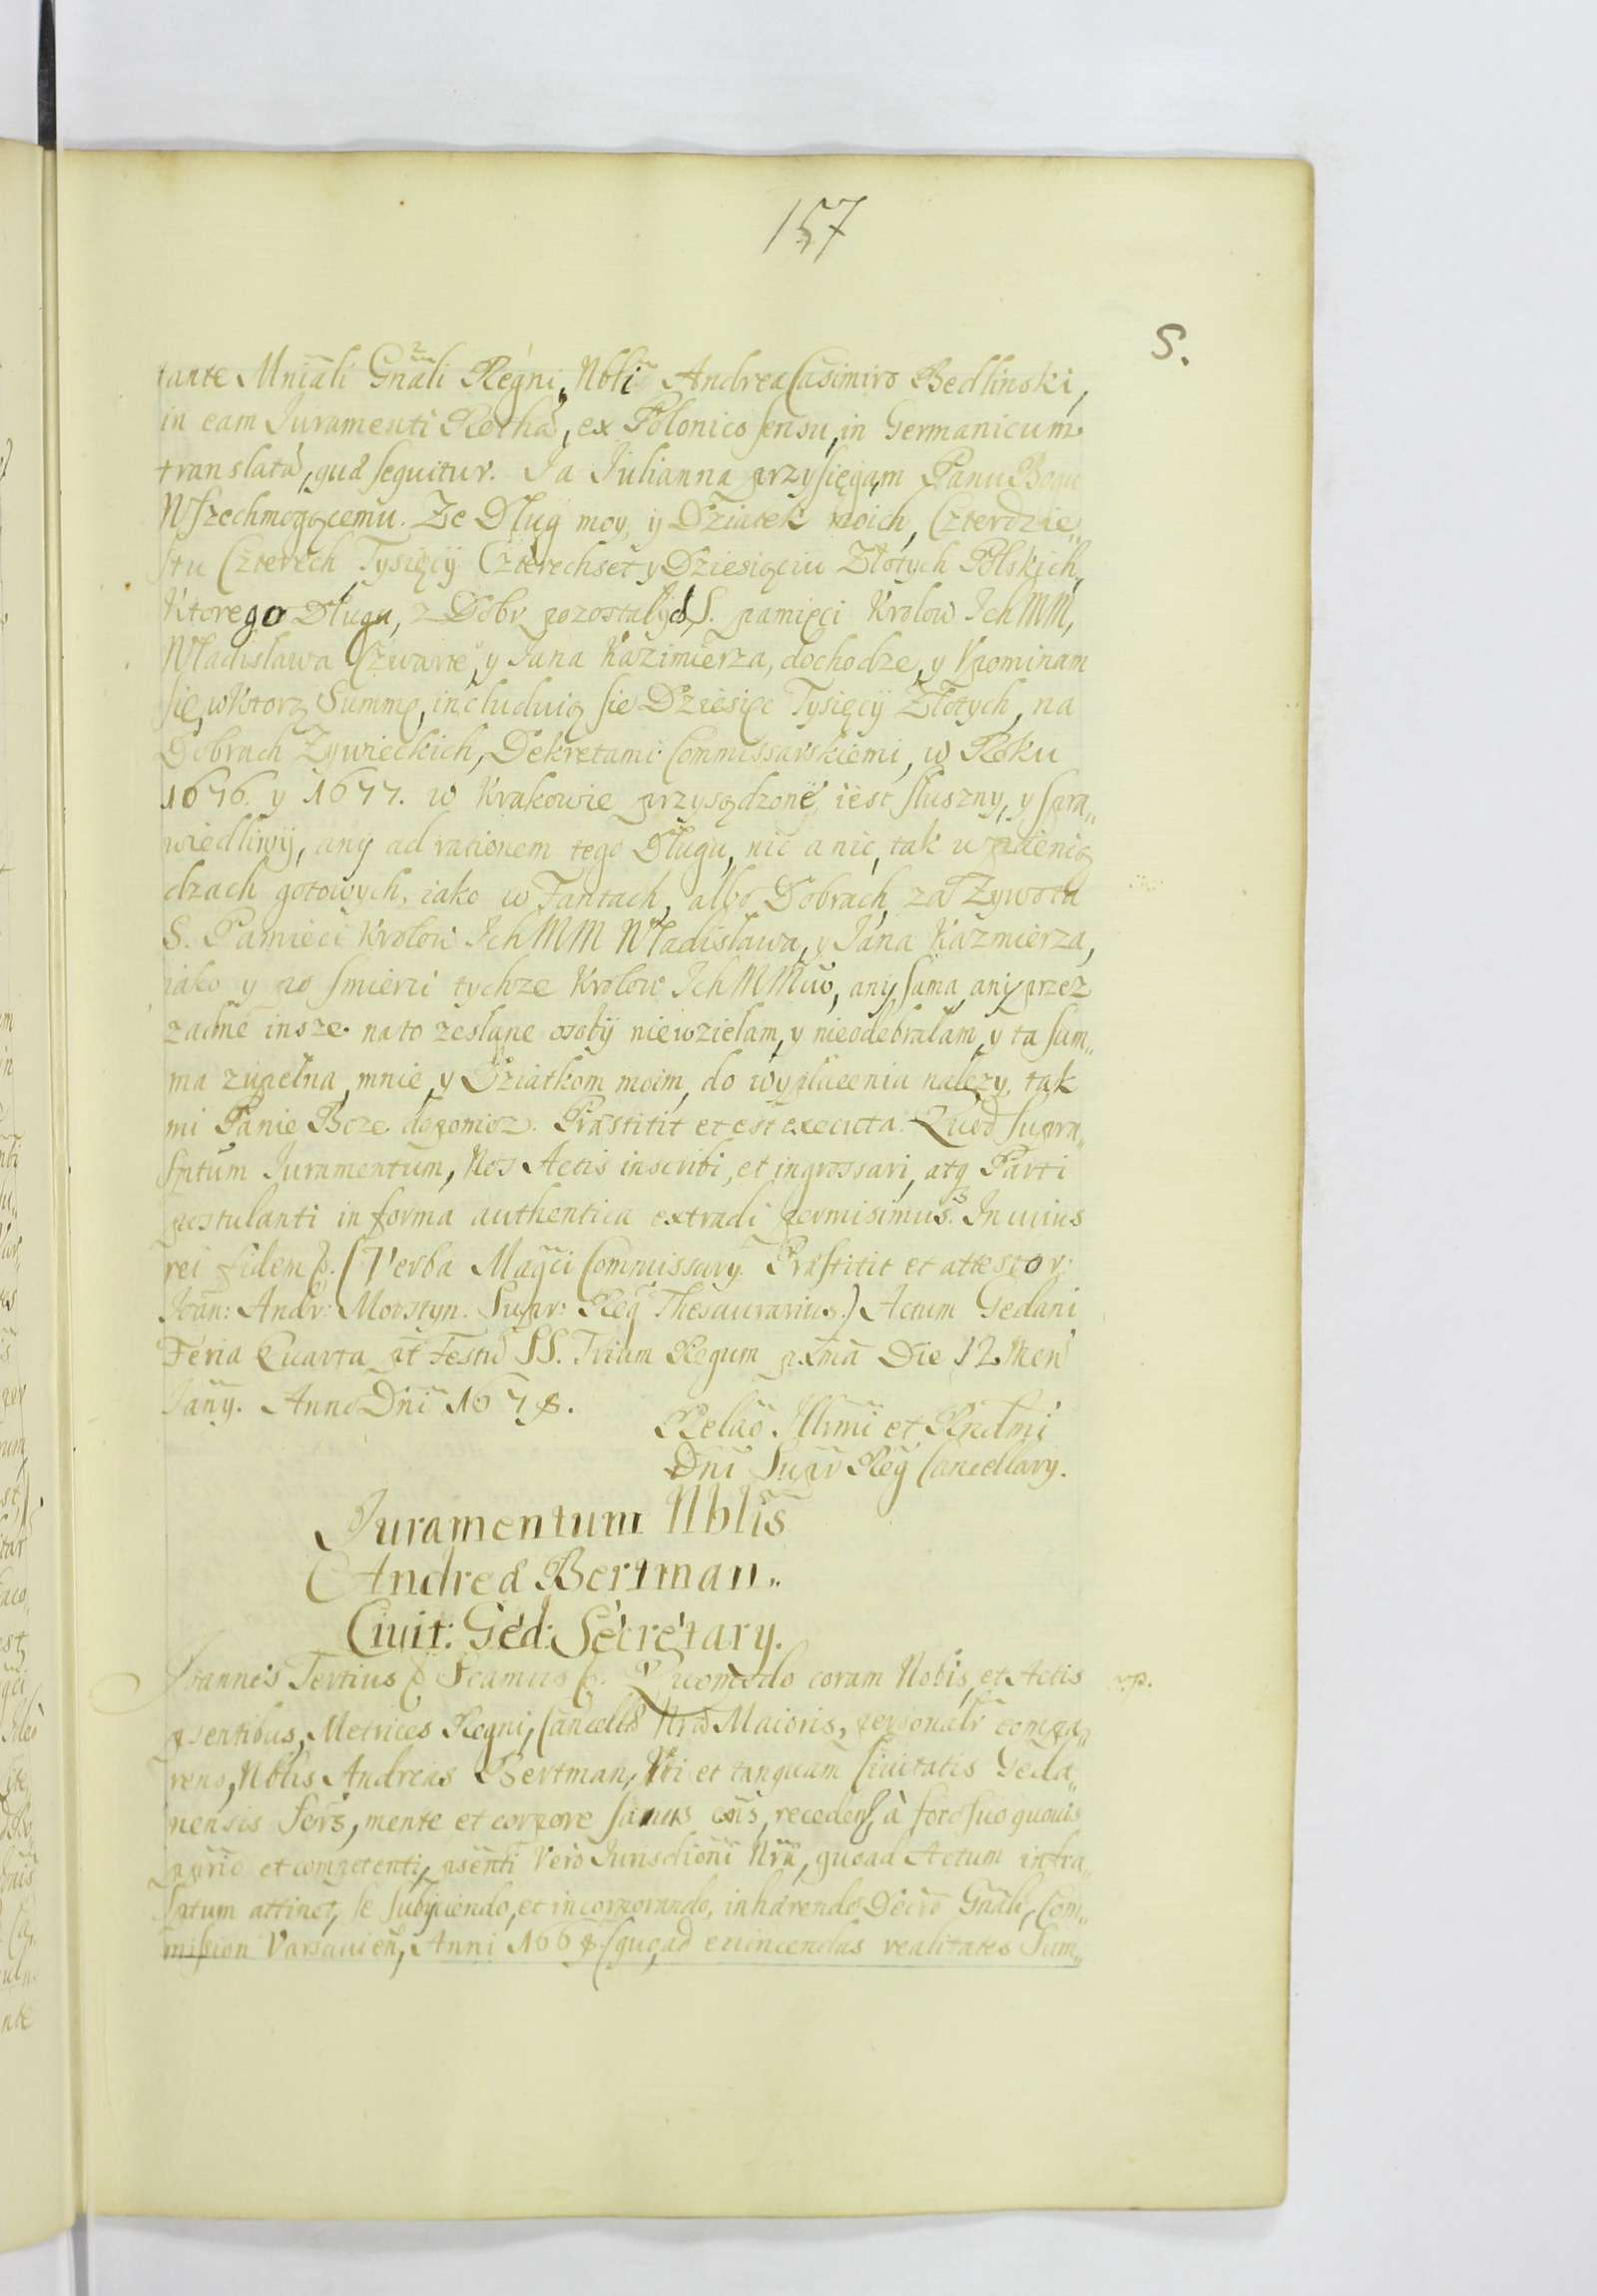 157
S.
tante Mniali Gnali Regni, Nbli Andrea Casimiro Bedlinski,
in eam Juramenti Rotha, ex Polonico sensu, in Germanicum
translata, qua sequitur. Ja Julianna przysięgam Panu Bogu
Wszechmogącemu. Ze Dług moy, ÿ Dziatek moich, Czterdzie„
stu Czterech Tysięcÿ Czterechset y Dziesięciu Złotych Polskich„
Ktorego Długu, z Dobr pozostałych S. pamięci Krolow Ich MM,
Władisława Czwarte° y Jana Kazimierza, dochodze, y Vpominam
się, w Ktorą Summę, includuią sie Dziesięc Tysięcÿ Złotych, na
Dobrach Zywieckich, Dekretami Commissarskiemi, w Roku
1676. y 1677. w Krakowie przysądzone, iest słuszny, y spra„
wiedliwÿ, anÿ ad rationem tego Długu, nic a nic, tak w pienią
dzach gotowych, iako w Fantach, albo Dobrach, za Zywota
S. Pamieci Krolow Ich MM Władisława, y Jana Kazmierza,
iako y po smierci tychze Krolow Ich MMciw, anÿ sama, anÿ przez
zadne insze na to zesłane osobÿ niewziełam, y nieodebrałam, y ta sum„
ma zupełna, mnie, y Dziatkom moim, do wypłacenia nalezy, tak
mi Panie Boze dopomoz. Præstitit et est executa. Quod supra„
sptum Juramentum, Nos Actis inscribi, et ingrossari, atq Parti
postulanti in forma authentica extradi permisimus. In cuius
rei fidem p. (Verba Magci Commissarÿ. Præstitit et attestor.
Joan: Andr: Morstyn. Supr: Reg Thesaurarius.) Actum Gedani
Feria Quarta pt Festu SS. Trium Regum pxma Die 12 Men
Janÿ. Anno Dni 1678.
Relao Illrmi et Rndmi
Dni Supr Reg Cancellarÿ.
Juramentum Nblis
Andreæ Bertman„
Ciuit: Ged: Secretarÿ.
Joannes Tertius p Scamus p. Quomodo coram Nobis, et Actis
psentibus, Metrices Regni, Cancell Nræ Maioris, personalr compa„
rens, Nblis Andreas Bertman, Vti et tanquam Ciuitatis Geda„
nensis Scrs, mente et corpore sanus ens, recedens, à foro suo quouis
pprio et competenti, psenti Vero Jurisdioni Nræ, quoad Actum infra„
sptum attinet, se subÿciendo, et incorporando, inhærendo Decro Gnali, Com„
mission Varsauien, Anni 1668 (quoad euincendas realitates Sum„